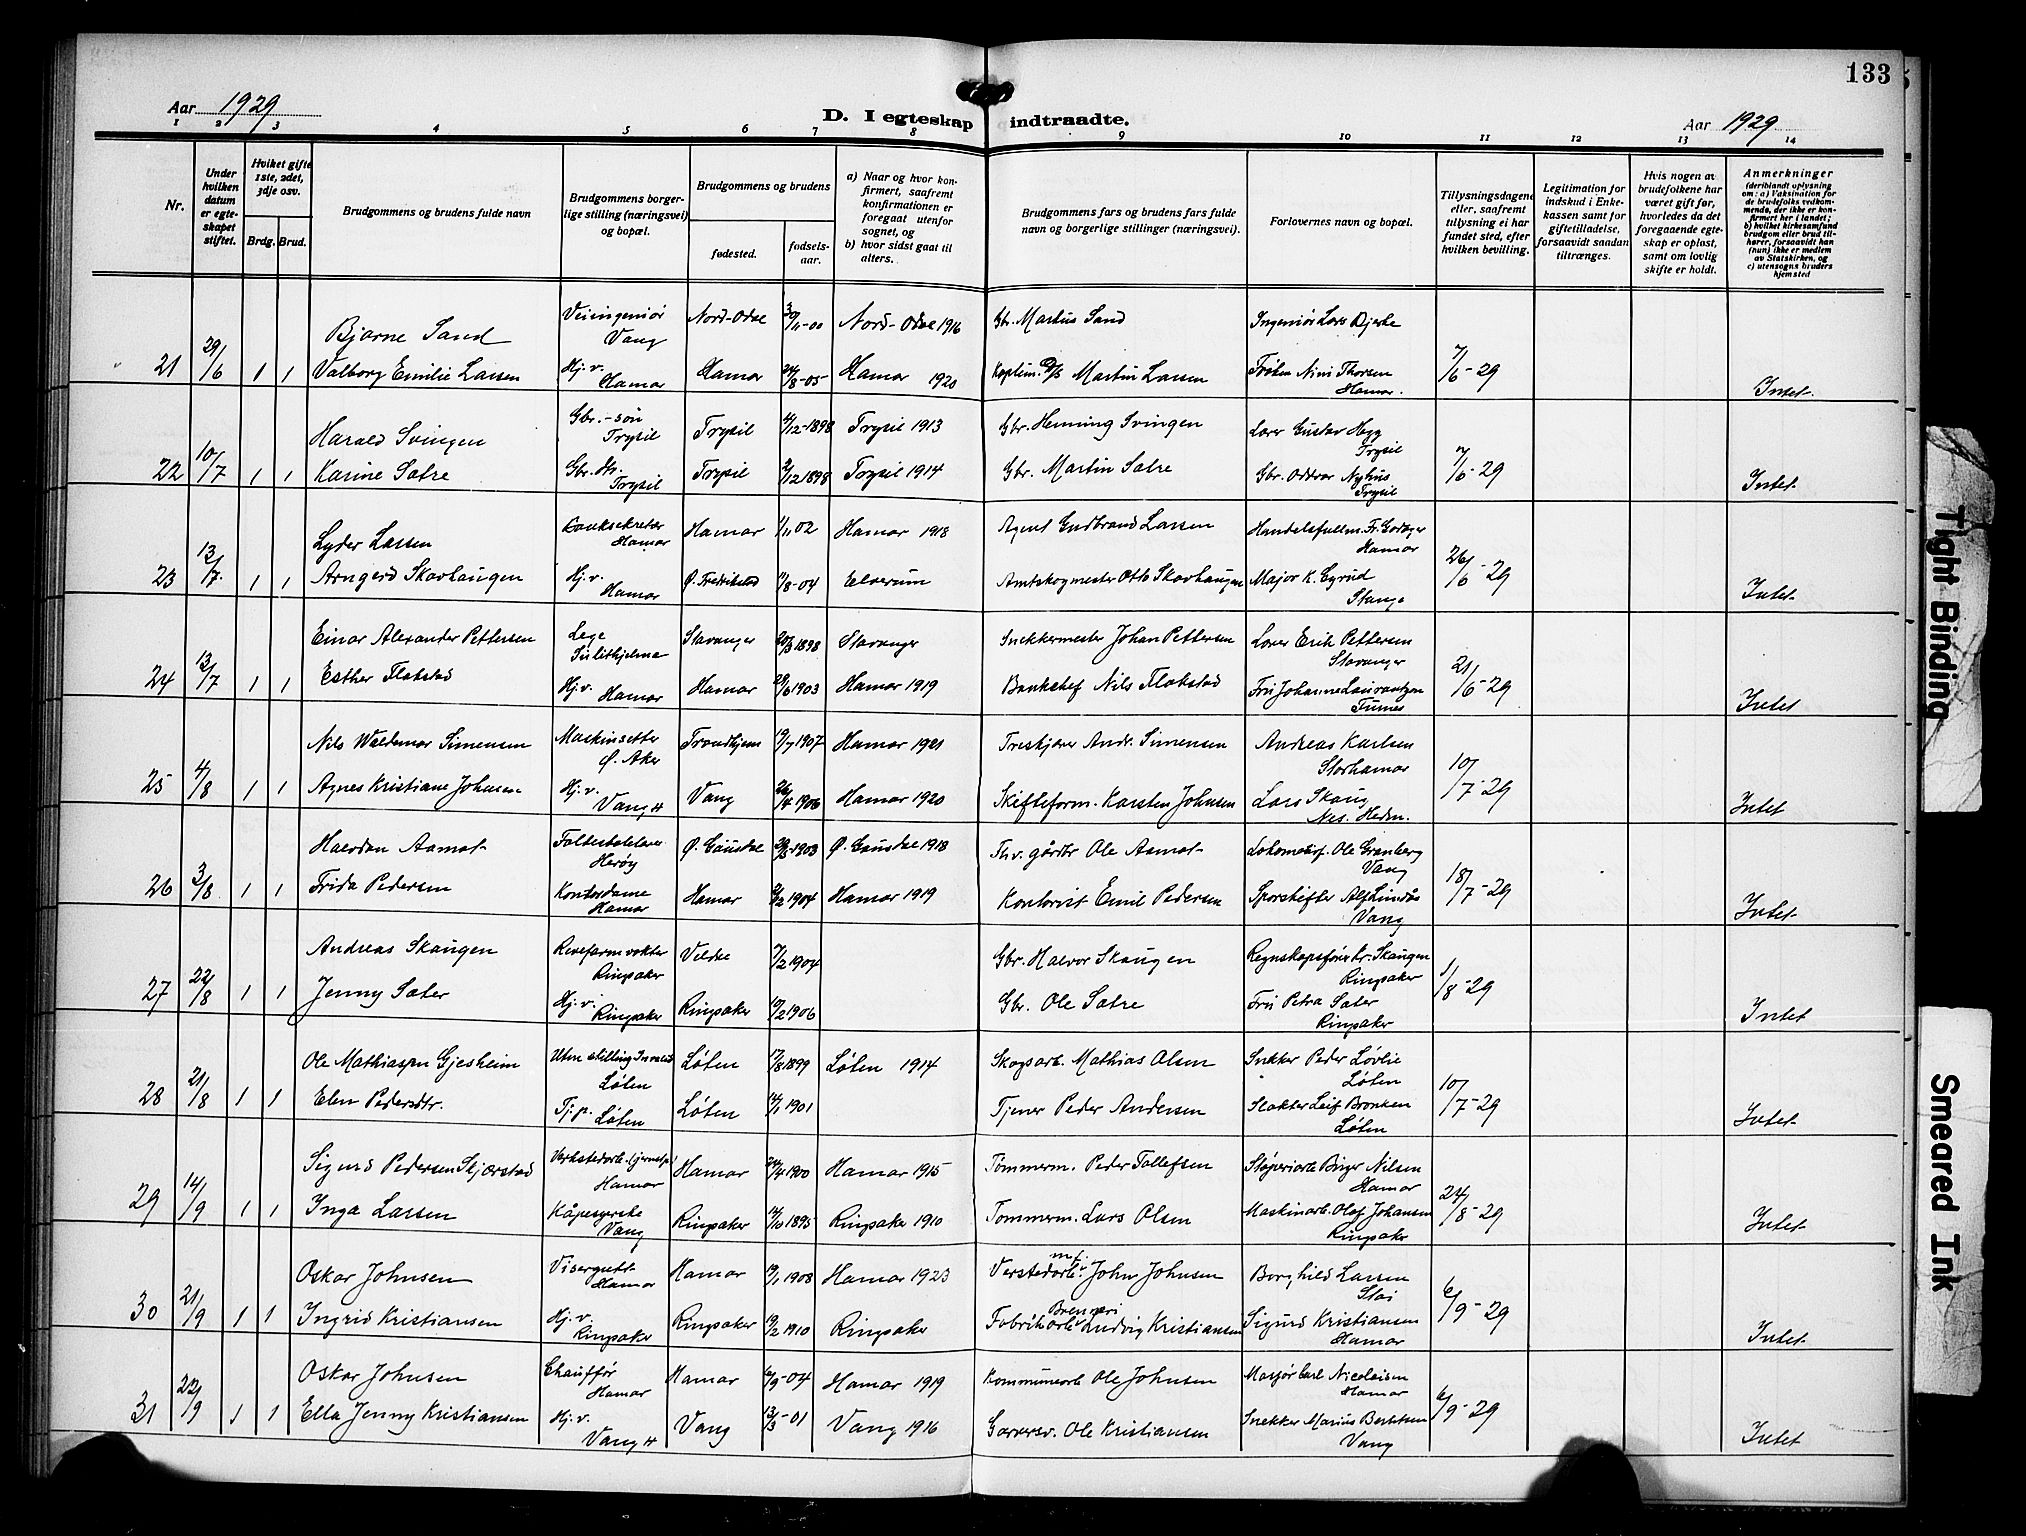 133
Aar 1929
D. I egteskap indtraadte.
Aar 1929
1 2 3 4 5 6 7 8 9 10 11 12 13 14
Nr.
Under hvilken datum er egteskapet stiftet.
Hvilket gifte 1ste, 2det, 3dje osv.
Brdg. Brud.
Brudgommens og brudens fulde navn
Brudgommens borgerlige stilling (næringsvei) og bopæl.
Brudgommens og brudens
fødested.
fødselsaar.
a) Naar og hvor konfirmert, saafremt konfirmationen er foregaat utenfor sognet, og
b) hvor sidst gaat til alters.
Brudgommens fars og brudens fars fulde navn og borgerlige stillinger (næringsvei).
Forlovernes navn og bopæl.
Tillysningsdagene eller, saafremt tillysning ei har fundet sted, efter hvilken bevilling.
Legitimation for indskud i Enkekassen samt for giftetilladelse, forsaavidt saadan tiltrænges.
Hvis nogen av brudefolkene har været gift før, hvorledes da det foregaaende egteskap er opløst, samt om lovlig skifte er holdt.
Anmerkninger
(deriblandt oplysning om: a) Vaksination for de brudefolks vedkommende, der ikke er konfirmert her i landet; b) hvilket kirkesamfund brudgom eller brud tilhører, forsaavidt han (hun) ikke er medlem av Statskirken, og c) utensogns bruders hjemsted
Bjarne Sand Veiingeniør Vang Nord-Odal 11-00 Nord-Odal 1916 Gbr. Martus Sand Ingeniør Lars Bjerke
21 29/6 1 1 Valborg Emilie Larsen Hj.v. Hamar Hamar 24/8-05 Hamar 1920 Martin Larsen Frøken Nini Thorsen Hamar. 7/6-29 Intet.
Harald Svingen Gbr.-søn Trysil Trysil 4/12-1898 Trysil 1913 Gbr. Henning Svingen Lærer Gustav Hegg Trysil
22 10/7 1 1 Karine Sætre Gbr. dtr. Trysil Trysil 2/12 1898 Trysil 1914 Gbr. Martin Sætre Gbr. Oddvar Nyhus Trysil 7/6-29 Intet.
Lyder Larsen Banksekretær Hamar Hamar 1/11 02 Hamar 1918 Agent Gudbrand Larsen Handelsfullm. Fr. Hamar
23 13/7 1 1 Arngerd Skavhaugen Hj.v. Hamar Ø. Fredrikstad 8-04 Elverum Amtskogmester Otto Skavhaugen Major K. Gyrud Stange 26/6-29 Intet.
Einar Alexander Pettersen Læge Sulithjelma Stavanger 20/3 1898 Stavanger Snekkermester Johan Pettersen Lærer Erik Pettersen Stavanger
24 13/7 1 1 Esther Flakstad Hj.v. Hamar Hamar 6 1903 Hamar 1919 Bankchef Nils Flakstad Fru Johanne Laurantzon Furnes 21/6-29 Intet
Nils Waldemar Simensen Maskinsetter Ø. Aker Trondhjem 19/7 1907 Hamar 1921 Treskjærer Andr. Simensen Andreas Karlsen Storhamar
25 4/8 1 1 Agnes Kristiane Johnsen Hj.v. Vang H Vang 26/4 1906 Hamar 1920 Skifteform. Karsten Johnsen Lars Skaug Nes. Hedm. 10/7-29 Intet
Halvdan Aamot Herøy Ø. Gausdal 1903 Ø. Gausdal 1918 Fhv. gårdbr Ole Aamot Lokomotivf. Ole Granberg Vang
26 3/8 1 1 Frida Pedersen Kontordame Hamar Hamar 2/2 1904 Hamar 1919 Kontorist Emil Pedersen Sporskifter Alf Lindås Vang 18/7-29 Intet
Andreas Skaugen Revefarmvokter Ringsaker Veldre 7/2 1904 Gbr. Halvor Skaugen Regnskapsfører Kr. Skaugen Ringsaker
27 22/8 1 1 Jenny Sæter Hj.v. Ringsaker Ringsaker 2 1906 Gbr. Ole Sætre Fru Petra Sæter Ringsaker 1/8-29 Intet
Ole Mathiassen Gjesheim Uten stilling Invalid Løten Løten 17/8 1899 Løten 1914 Skogsarb. Mathias Olsen Snekker Peder Løvlie Løten
28 21/8 1 1 Elen Pedersdtr. Tj.p. Løten Løten 14/1 1901 Tjener Peder Andersen Slakter Leif Bronken Løten 10/7-29 Intet
Sigurd Pedersen Skjærstad Hamar Hamar 24/4 1900 Hamar 1915 Tømmerm. Peder Tollefsen Støperiarb Birger Nilsen Hamar
29 14/9 1 1 Inga Larsen Kåpesyerske Vang Ringsaker 14/10 1895 Ringsaker 1910 Tømmerm. Lars Olsen Maskinarb. Olaf Johansen Ringsaker 24/8-29 Intet
Oskar Johnsen Visergutt Hamar Hamar 19/1 1908 Hamar 1923 Verstedarb. m.f. John Johnsen Borghild Larsen Stai
30 21/9 1 1 Ingrid Kristiansen Hj.v. Ringsaker Ringsaker 2 1910 Ringsaker Fabrikarb. Brenneri Ludvig Kristiansen Sigurd Kristiansen Hamar 6/9-29 Intet
Oskar Johnsen Chauffør Hamar Hamar 6/9-04 Hamar 1919 Kommunearb Ole Johnsen Massør Carl Nicolaisen Hamar
31 22/9 1 1 Ella Jenny Kristiansen Hj.v. Vang H Vang 13/3-01 Vang 1916 Garversv. Ole Kristiansen Snekker Marius Berntsen Vang 6/9-29 Intet
Tight Binding
Smeared Ink